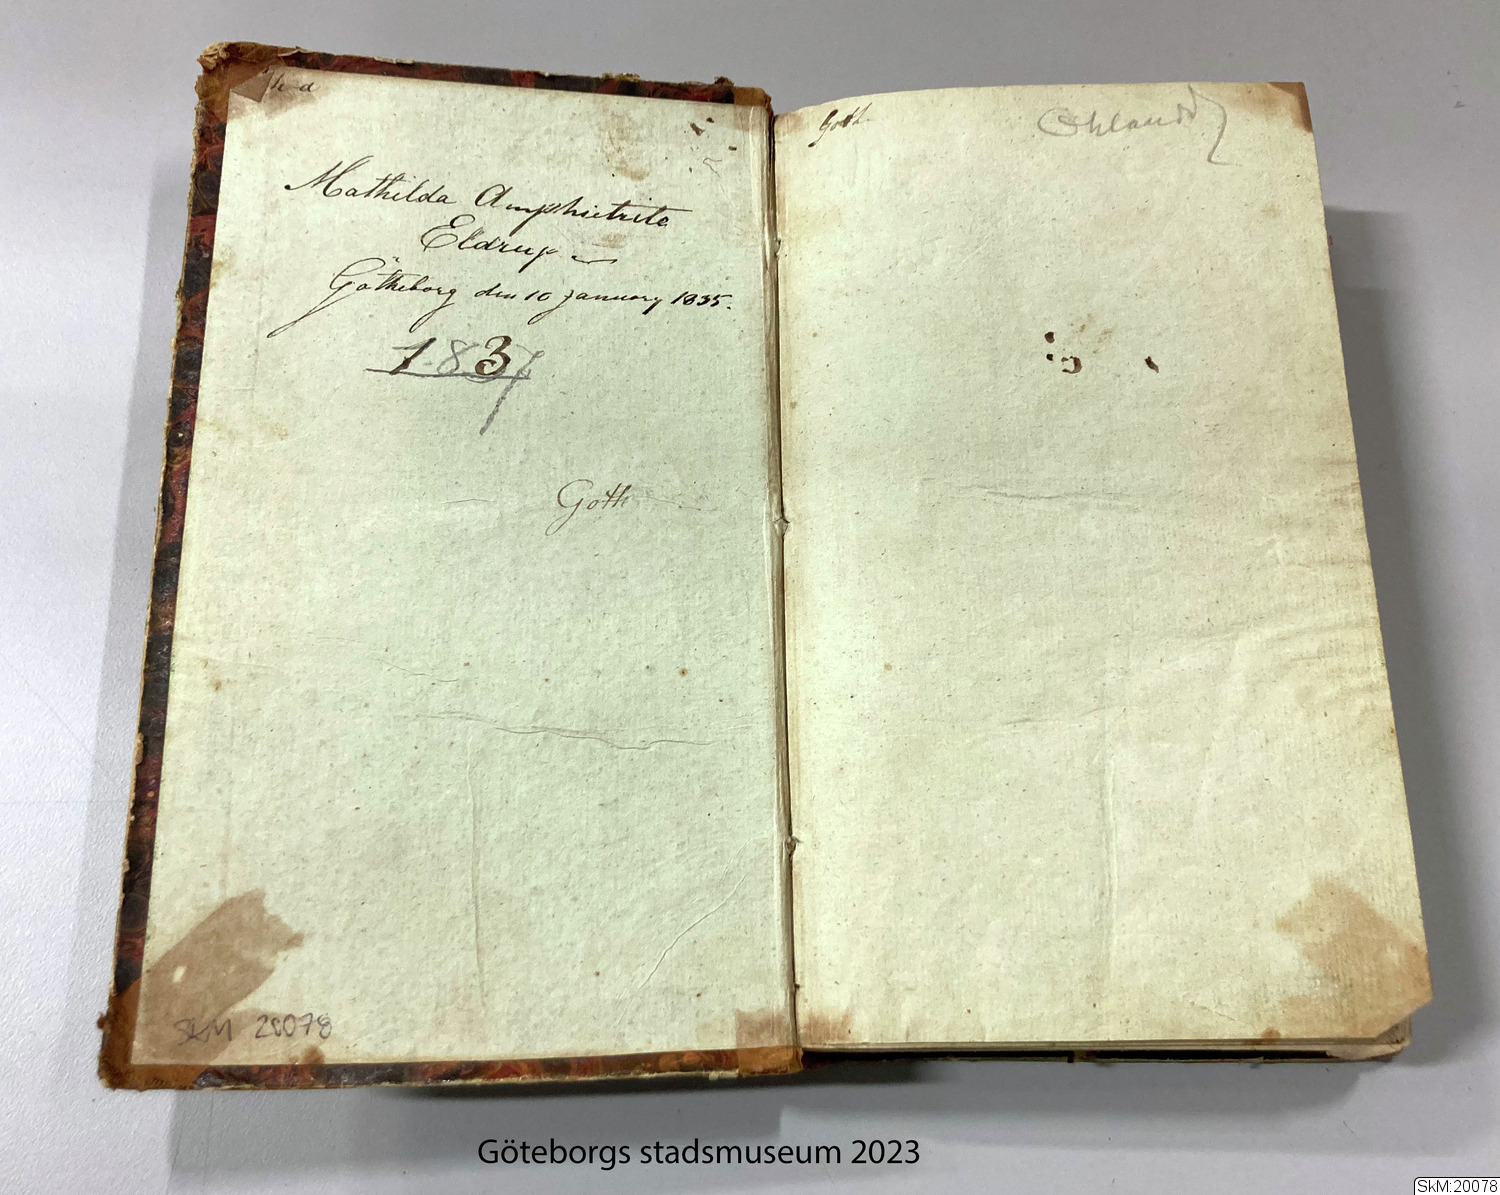 Mathilda Amphietrite
Eldrup
Götheborg den 10 January 1835.
1837
Goth
SKM 20078
Goth
Göteborgs stadsmuseum 2023
SkM:20078